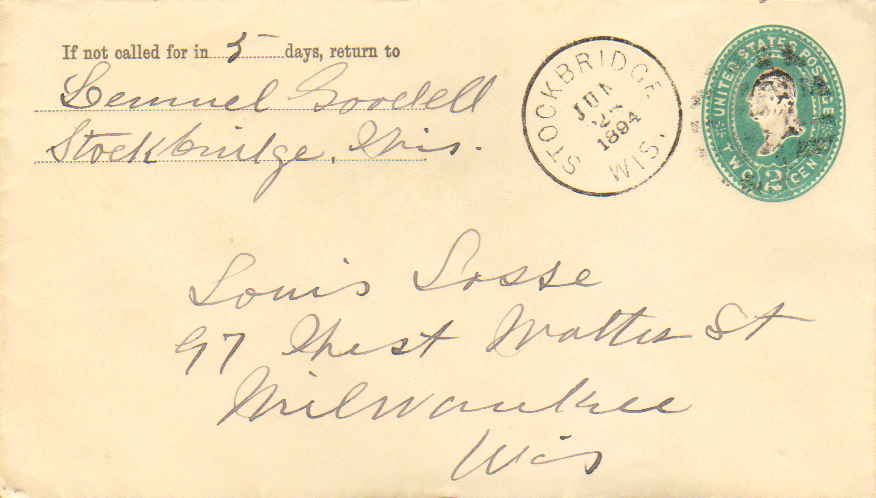 If not called for in 5 days, return to
Lemuel Goodell
Stockbridge, Wis.
STOCKBRIDGE
JUN
1894
WIS.
UNITED STATES POSTAGE
TWO 2 CENTS
Louis Losse
97 West Water St
Milwaukee
Wis